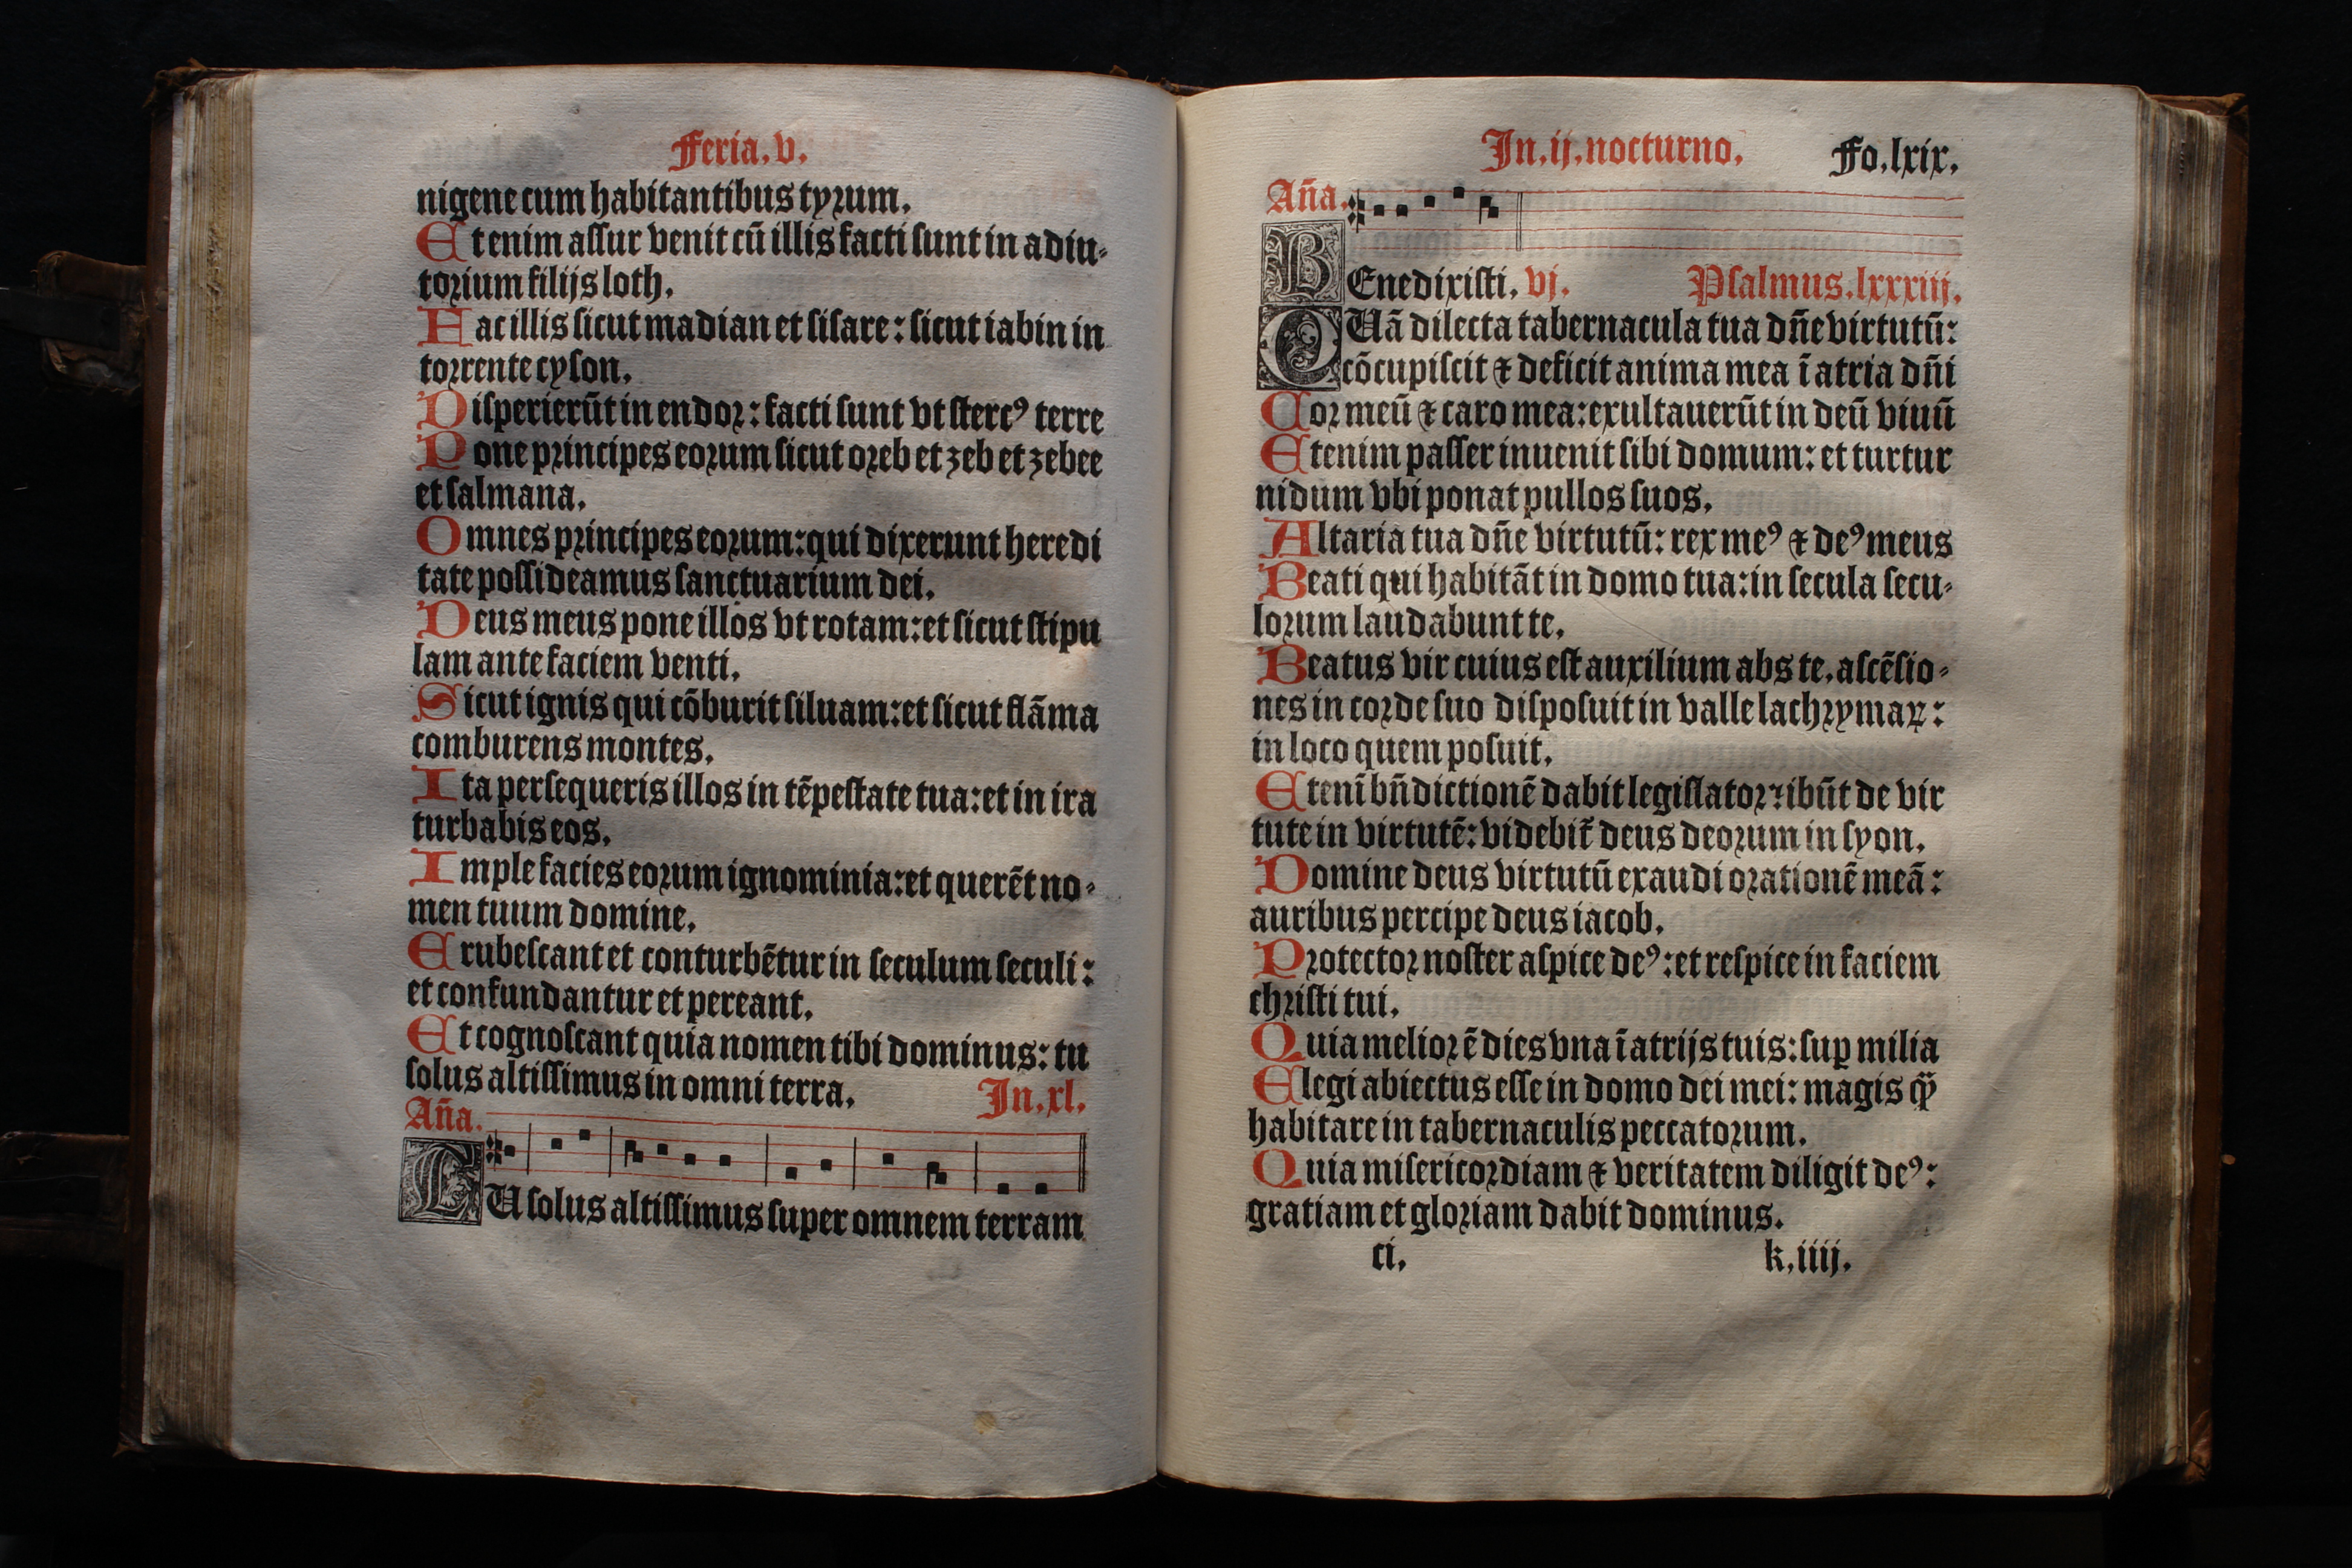 Feria.v.
nigene cum habitantibus tyrum.
Et enim assur venit cū illis facti sunt in adiu-
torium filijs loth.
Fac illis sicut madian et sisare: sicut iabin in
torrente cyson.
Disperierūt in endor: facti sunt vt stercꝰ terre
Pone principes eorum sicut oreb et zeb et zebee
et salmana.
Omnes principes eorum: qui dixerunt heredi
tate possideamus sanctuarium dei.
Deus meus pone illos vt rotam: et sicut stipu
lam ante faciem venti.
Sicut ignis qui cōburit siluam: et sicut flāma
comburens montes.
Ita persequeris illos in tēpestate tua: et in ira
turbabis eos.
Imple facies eorum ignominia: et querēt no-
men tuum domine.
Erubescant et conturbētur in seculum seculi:
et confundantur et pereant.
Et cognoscant quia nomen tibi dominus: tu
solus altissimus in omni terra. In.xl.
An̄a.
TU solus altissimus super omnem terram
In.ij.nocturno. Fo.lxix.
An̄a.
BEnedixisti. vj. Psalmus.lxxxiij.
QUā dilecta tabernacula tua dn̄e virtutū:
cōcupiscit ⁊ deficit anima mea ī atria dn̄i
Cor meū ⁊ caro mea: exultauerūt in deū viuū
Etenim passer inuenit sibi domum: et turtur
nidum vbi ponat pullos suos.
Altaria tua dn̄e virtutū: rex meꝰ ⁊ deꝰ meus
Beati qui habitāt in domo tua: in secula secu-
lorum laudabunt te.
Beatus vir cuius est auxilium abs te. ascēsio-
nes in corde suo disposuit in valle lachrymaꝝ:
in loco quem posuit.
Etenī bn̄dictionē dabit legislator ⁊ ibūt de vir
tute in virtutē: videbit̄ deus deorum in syon.
Domine deus virtutū exaudi orationē meā:
auribus percipe deus iacob.
Protector noster aspice deꝰ: et respice in faciem
christi tui.
Quia melior ē dies vna ī atrijs tuis: suꝑ milia
Elegi abiectus esse in domo dei mei: magis ꝙ̄
habitare in tabernaculis peccatorum.
Quia misericordiam ⁊ veritatem diligit deꝰ:
gratiam et gloriam dabit dominus.
ci. k.iiij.